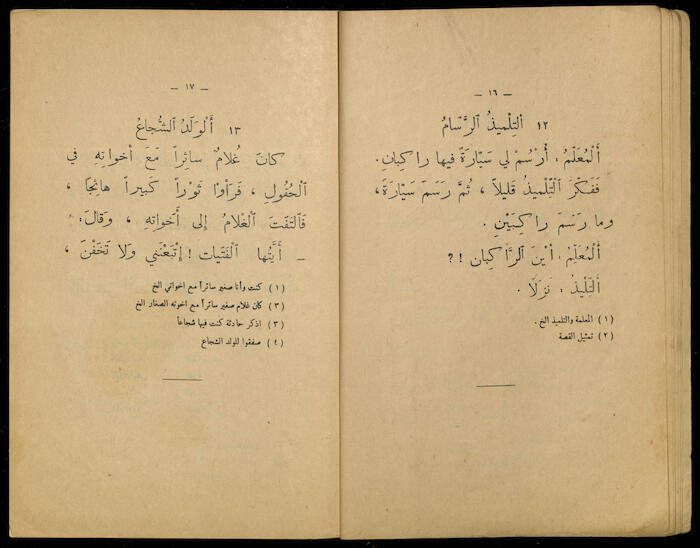 — ١٦ —
١٢ اَلتِّلْمِيذُ الرَّسَّامُ
اَلْمُعَلِّمُ : أُرْسُمْ لِي سَيَّارَةً فيها راكِبانِ.
فَفَكَّرَ التِّلْمِيذُ قَلِيلاً ، ثُمَّ رَسَمَ سَيَّارَةً ،
وما رَسَمَ راكِبَيْنِ .
اَلْمُعَلِّمُ : أَيْنَ الرَّاكِبانِ ؟!
اَلتِّلْمِيذُ : نَزَلَا .
(١) المعلمة والتلميذ الخ .
(٢) تمثيل القصة
— ١٧ —
١٣ أَلْوَلَدُ الشُّجاعُ
كانَ غُلامٌ سائِراً مَعَ أَخَواتِهِ في
الْحُقُولِ ، فَرَأَوْا ثَوْراً كَبيراً هائِجًا ،
فَالْتَفَتَ الْغُلامُ إِلى أَخَواتِهِ ، وَقالَ:
– أَيَّتُها الْفَتَيات ! إِتْبَعْنَني ولا تَخَفْنَ ،
(١) كنت وأنا صغير سائراً مع اخواتي الخ
(٢) كان غلام صغير سائراً مع اخوته الصغار الخ
(٣) اذكر حادثة كنت فيها شجاعاً
(٤) صفقوا للولد الشجاع